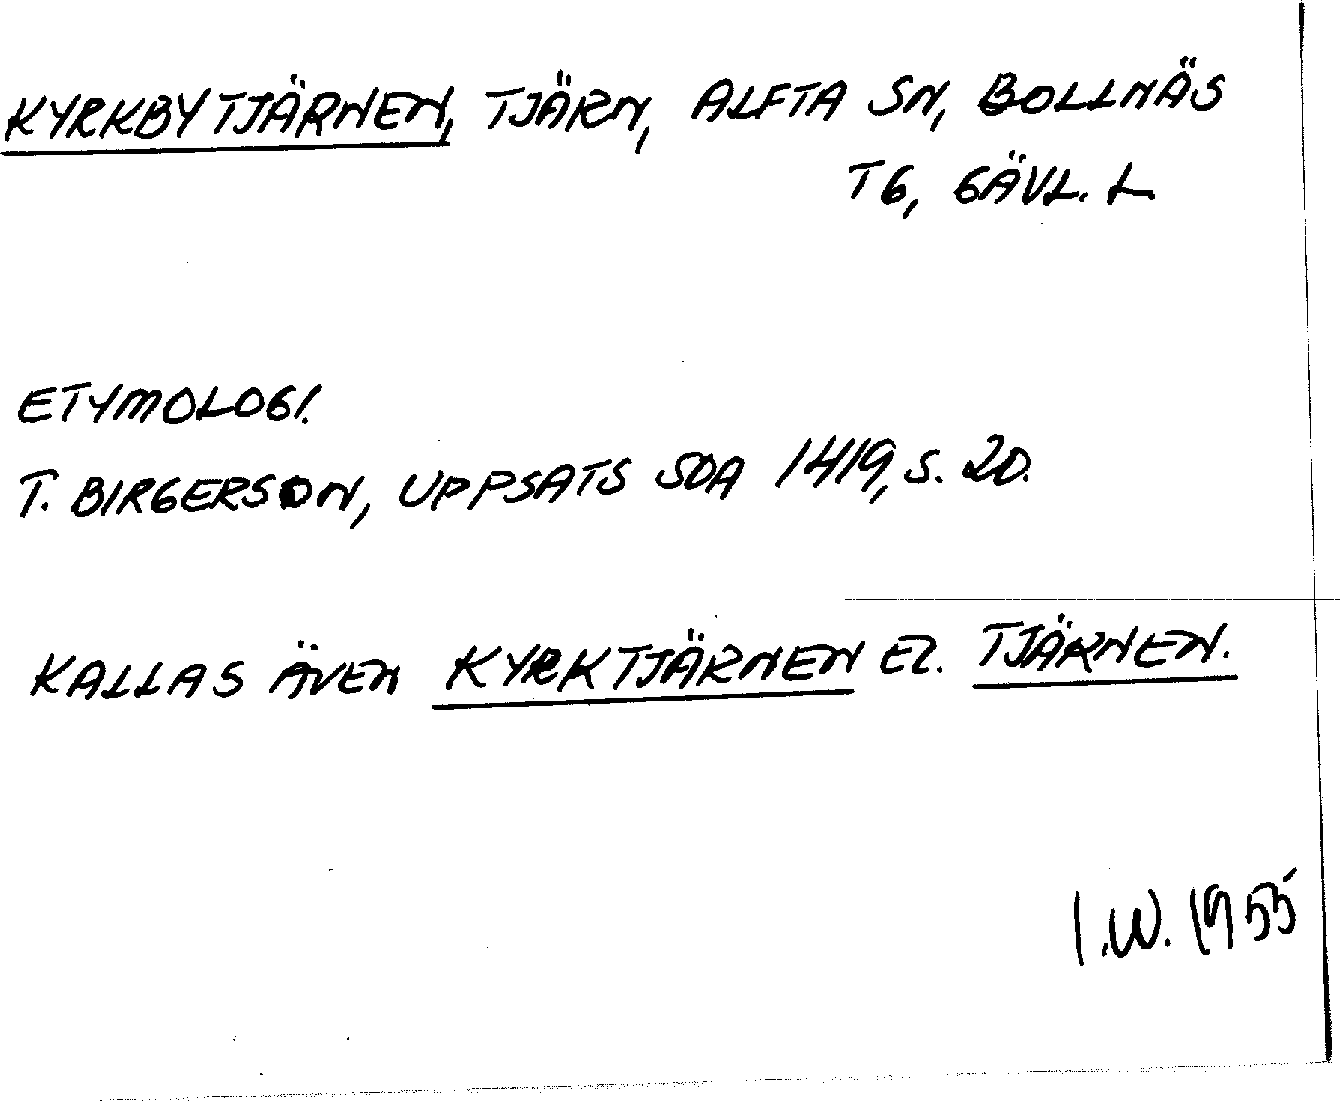 KYRKBYTJÄRNEN, TJÄRN, ALFTA SN, BOLLNÄS
TG, GÄVL. L.
ETYMOLOGI.
T. BIRGERSON, UPPSATS SOA 1419, S. 20.
KALLAS ÄVEN KYRKTJÄRNEN EL. TJÄRNEN.
I.W. 1955